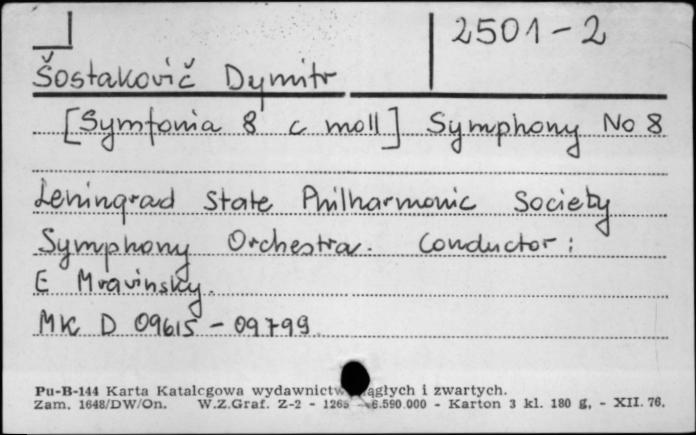 2501-2
Šostakovič Dymitr
[Symfonia 8 c moll] Symphony No 8
Leningrad State Philharmonic Society
Symphony Orchestra. Conductor:
E Mravinsky.
MK D 09615 - 09799.
Pu-B-144 Karta Katalogowa wydawnictw ciągłych i zwartych.
Zam. 1648/DW/On. W.Z.Graf. Z-2 - 1265 6.590.000 - Karton 3 kl. 180 g, - XII. 76.